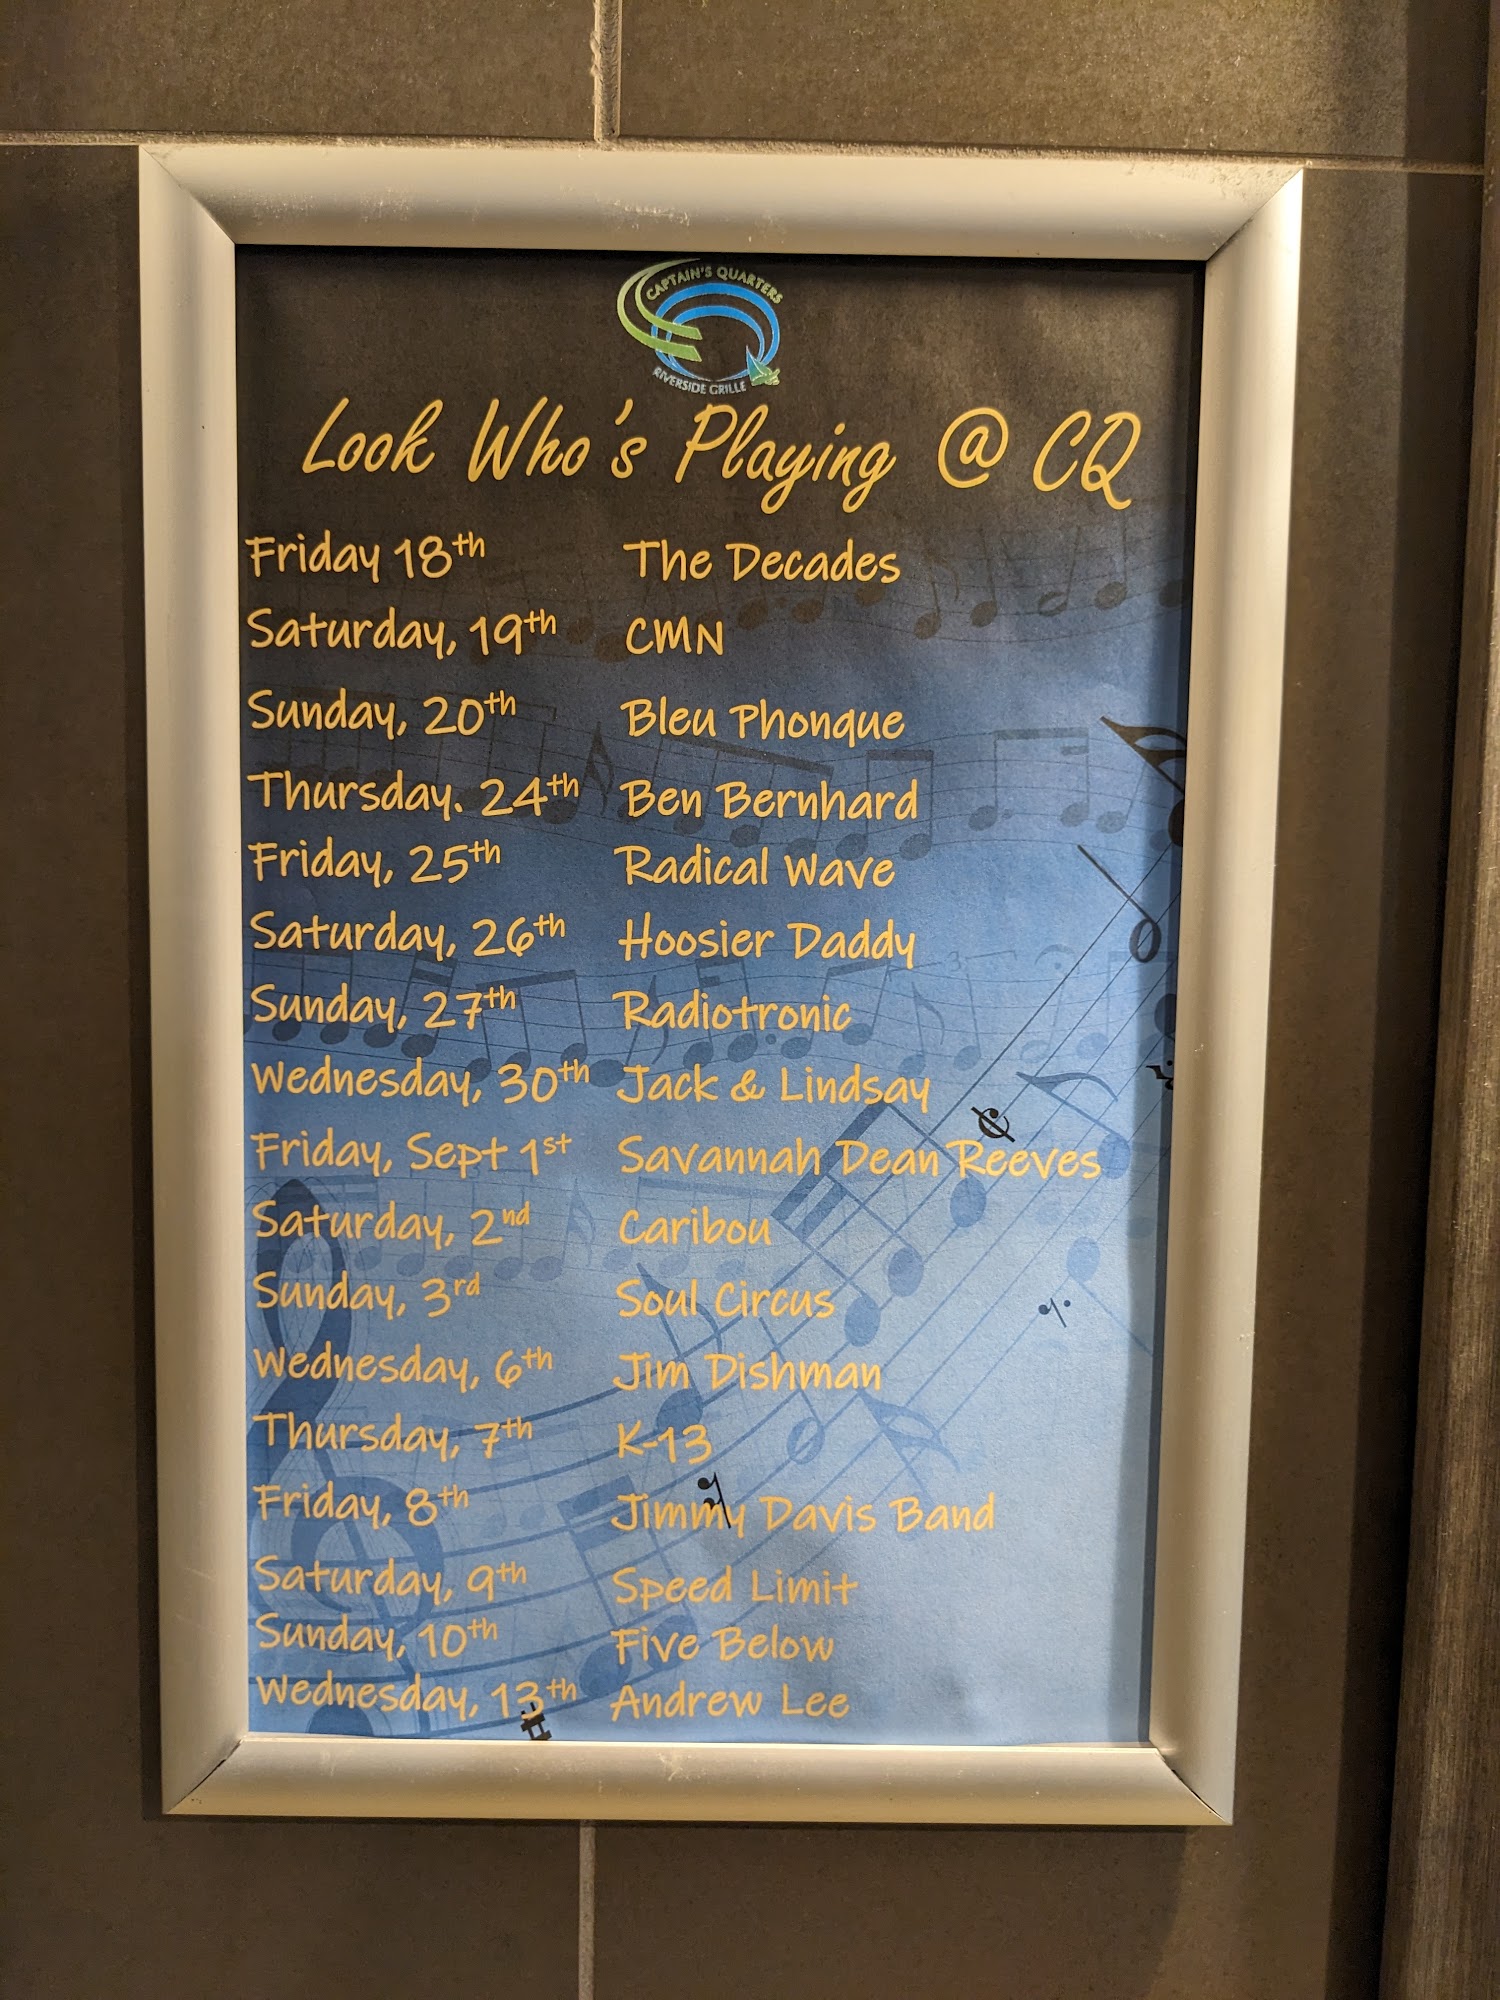 CAPTAIN'S QUARTERS
RIVERSIDE GRILLE
Look Who's Playing @ CQ
Friday 18th The Decades
Saturday, 19th CMN
Sunday, 20th Bleu Phonque
Thursday. 24th Ben Bernhard
Friday, 25th Radical Wave
Saturday, 26th Hoosier Daddy
Sunday, 27th Radiotronic
Wednesday, 30th Jack & Lindsay
Friday, Sept 1st Savannah Dean Reeves
Saturday, 2nd Caribou
Sunday, 3rd Soul Circus
Wednesday, 6th Jim Dishman
Thursday, 7th K-13
Friday, 8th Jimmy Davis Band
Saturday, 9th Speed Limit
Sunday, 10th Five Below
Wednesday, 13th Andrew Lee